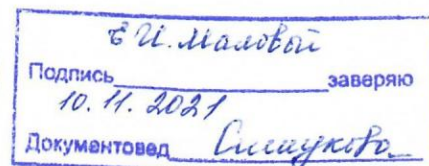 Е.И. Маловой
Подпись заверяю
10.11.2021
Документовед